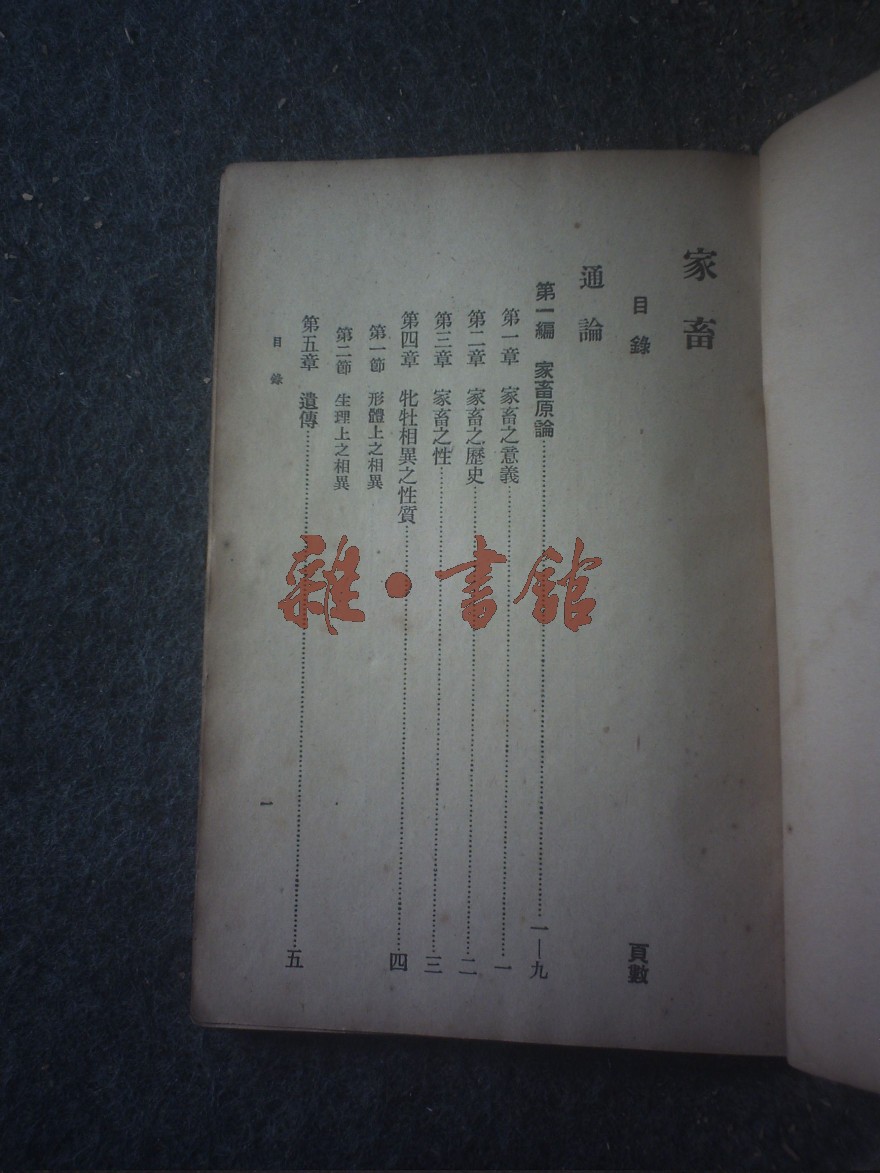 家畜
目錄
頁數
通論
第一編 家畜原論………一—九
第一章 家畜之意義………一
第二章 家畜之歷史………二
第三章 家畜之性………三
第四章 牝牡相異之性質………四
第一節 形體上之相異
第二節 生理上之相異
第五章 遺傳………五
目錄
一
雜·書館